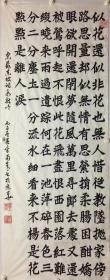 似花還似非花也無人惜從教墜拋家傍
路思量却是無情有思縈損柔腸困酣嬌
眼欲開還閉夢隨風萬里尋郎去處又還
被鶯呼起不恨此花飛盡恨西園落紅難
綴曉來雨過遺踪何在一池萍碎春色三
分二分塵土一分流水細看來不是楊花
點點是離人淚